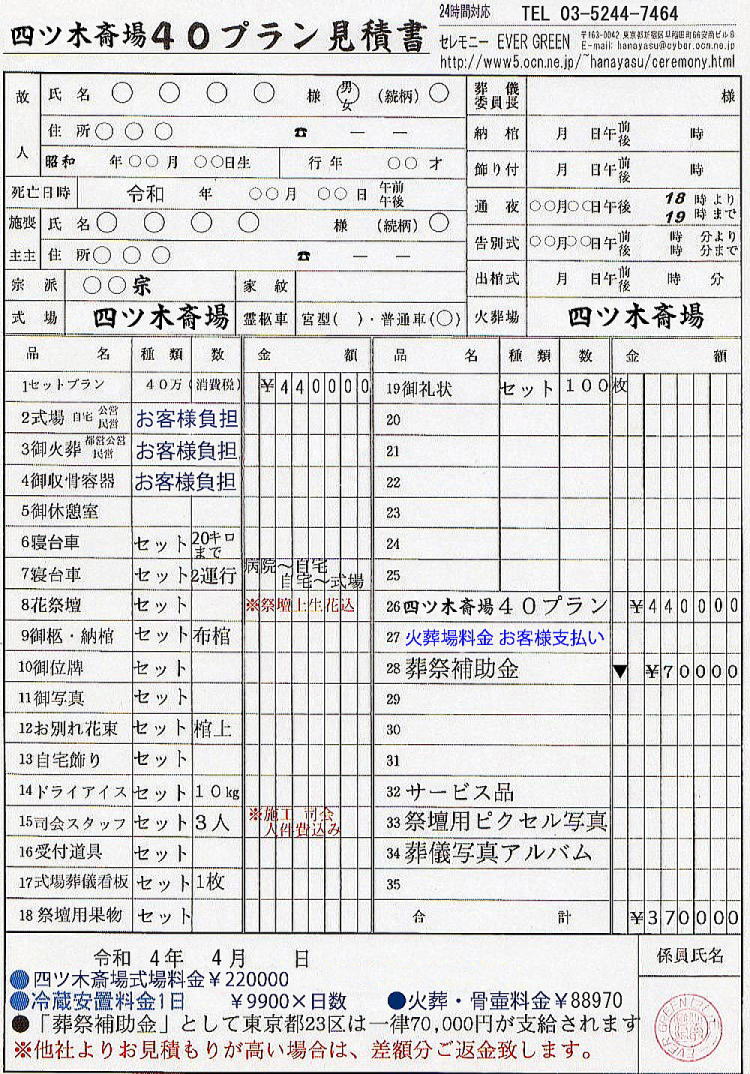 四ツ木斎場40プラン見積書
24時間対応 TEL 03-5244-7464
セレモニー EVER GREEN
E-mail: hanayasu@cyber.ocn.ne.jp
http://www5.ocn.ne.jp/~hanayasu/ceremony.html
故人 氏名 ○ ○ ○ ○ 様 男女 (続柄) ○
住所 ○ ○ ○ ☎ — —
昭和 年○○月 ○○日生 行年 ○○才
死亡日時 令和 年 ○○月 ○○日 午前午後
施主 喪主 氏名 ○ ○ ○ ○ 様 (続柄) ○
住所 ○ ○ ○ ☎ — —
宗派 ○○宗 家紋
式場 四ツ木斎場 霊柩車 宮型( )・普通車(○)
葬儀委員長 様
納棺 月 日午前後 時
飾り付 月 日午前後 時
通夜 ○○月○○日午後 18時より 19時まで
告別式 ○○月○○日午前後 時 分より 時 分まで
出棺式 月 日午前後 時 分
火葬場 四ツ木斎場
品名 種類 数 金額
1セットプラン 40万 (消費税) ¥440000
2式場 自宅 公営 民営 お客様負担
3御火葬 都営公営 民営 お客様負担
4御収骨容器 お客様負担
5御休憩室
6寝台車 セット 20キロまで
7寝台車 セット 2運行 病院～自宅 自宅～式場
8花祭壇 セット ※祭壇上生花込
9御柩・納棺 セット 布棺
10御位牌 セット
11御写真 セット
12お別れ花束 セット 棺上
13自宅飾り セット
14ドライアイス セット 10kg
15司会スタッフ セット 3人 ※施工 司会 人件費込み
16受付道具 セット
17式場葬儀看板 セット 1枚
18祭壇用果物 セット
品名 種類 数 金額
19御礼状 セット 100枚
20
21
22
23
24
25
26四ツ木斎場40プラン ¥440000
27 火葬場料金 お客様支払い
28 葬祭補助金 ▼ ¥70000
29
30
31
32 サービス品
33 祭壇用ピクセル写真
34 葬儀写真アルバム
35
合計 ¥370000
令和 4年 4月 日
●四ツ木斎場式場料金¥220000
●冷蔵安置料金1日 ¥9900×日数 ●火葬・骨壷料金¥88970
●「葬祭補助金」として東京都23区は一律70,000円が支給されます
※他社よりお見積もりが高い場合は、差額分ご返金致します。
係員氏名